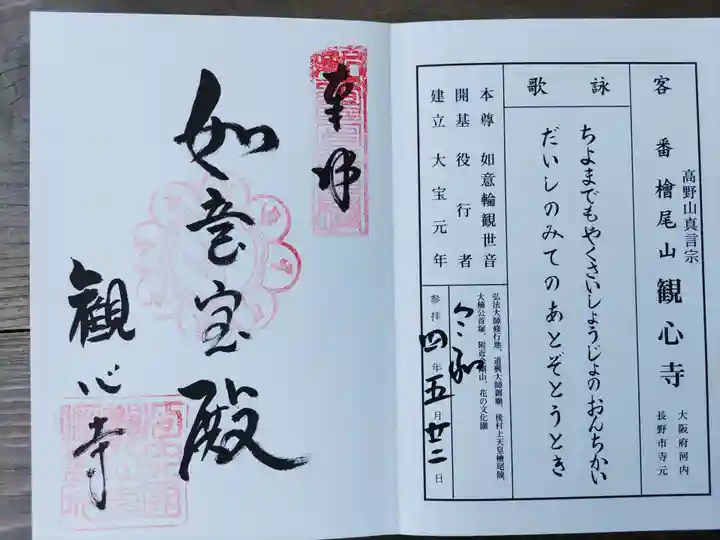 客番 高野山真言宗 檜尾山 観心寺 大阪府河内長野市寺元
詠歌
ちよまでもやくさいしょうじょのおんちかい
だいしのみてのあとぞとうとき
本尊 如意輪観世音
開基 役行者
建立 大宝元年
弘法大師修行地、道興大師御廟、後村上天皇檜尾陵、
大楠公首塚、附近 山、花の文化園
参拝 令和四年五月廿二日
奉拝
如意宝殿
観心寺